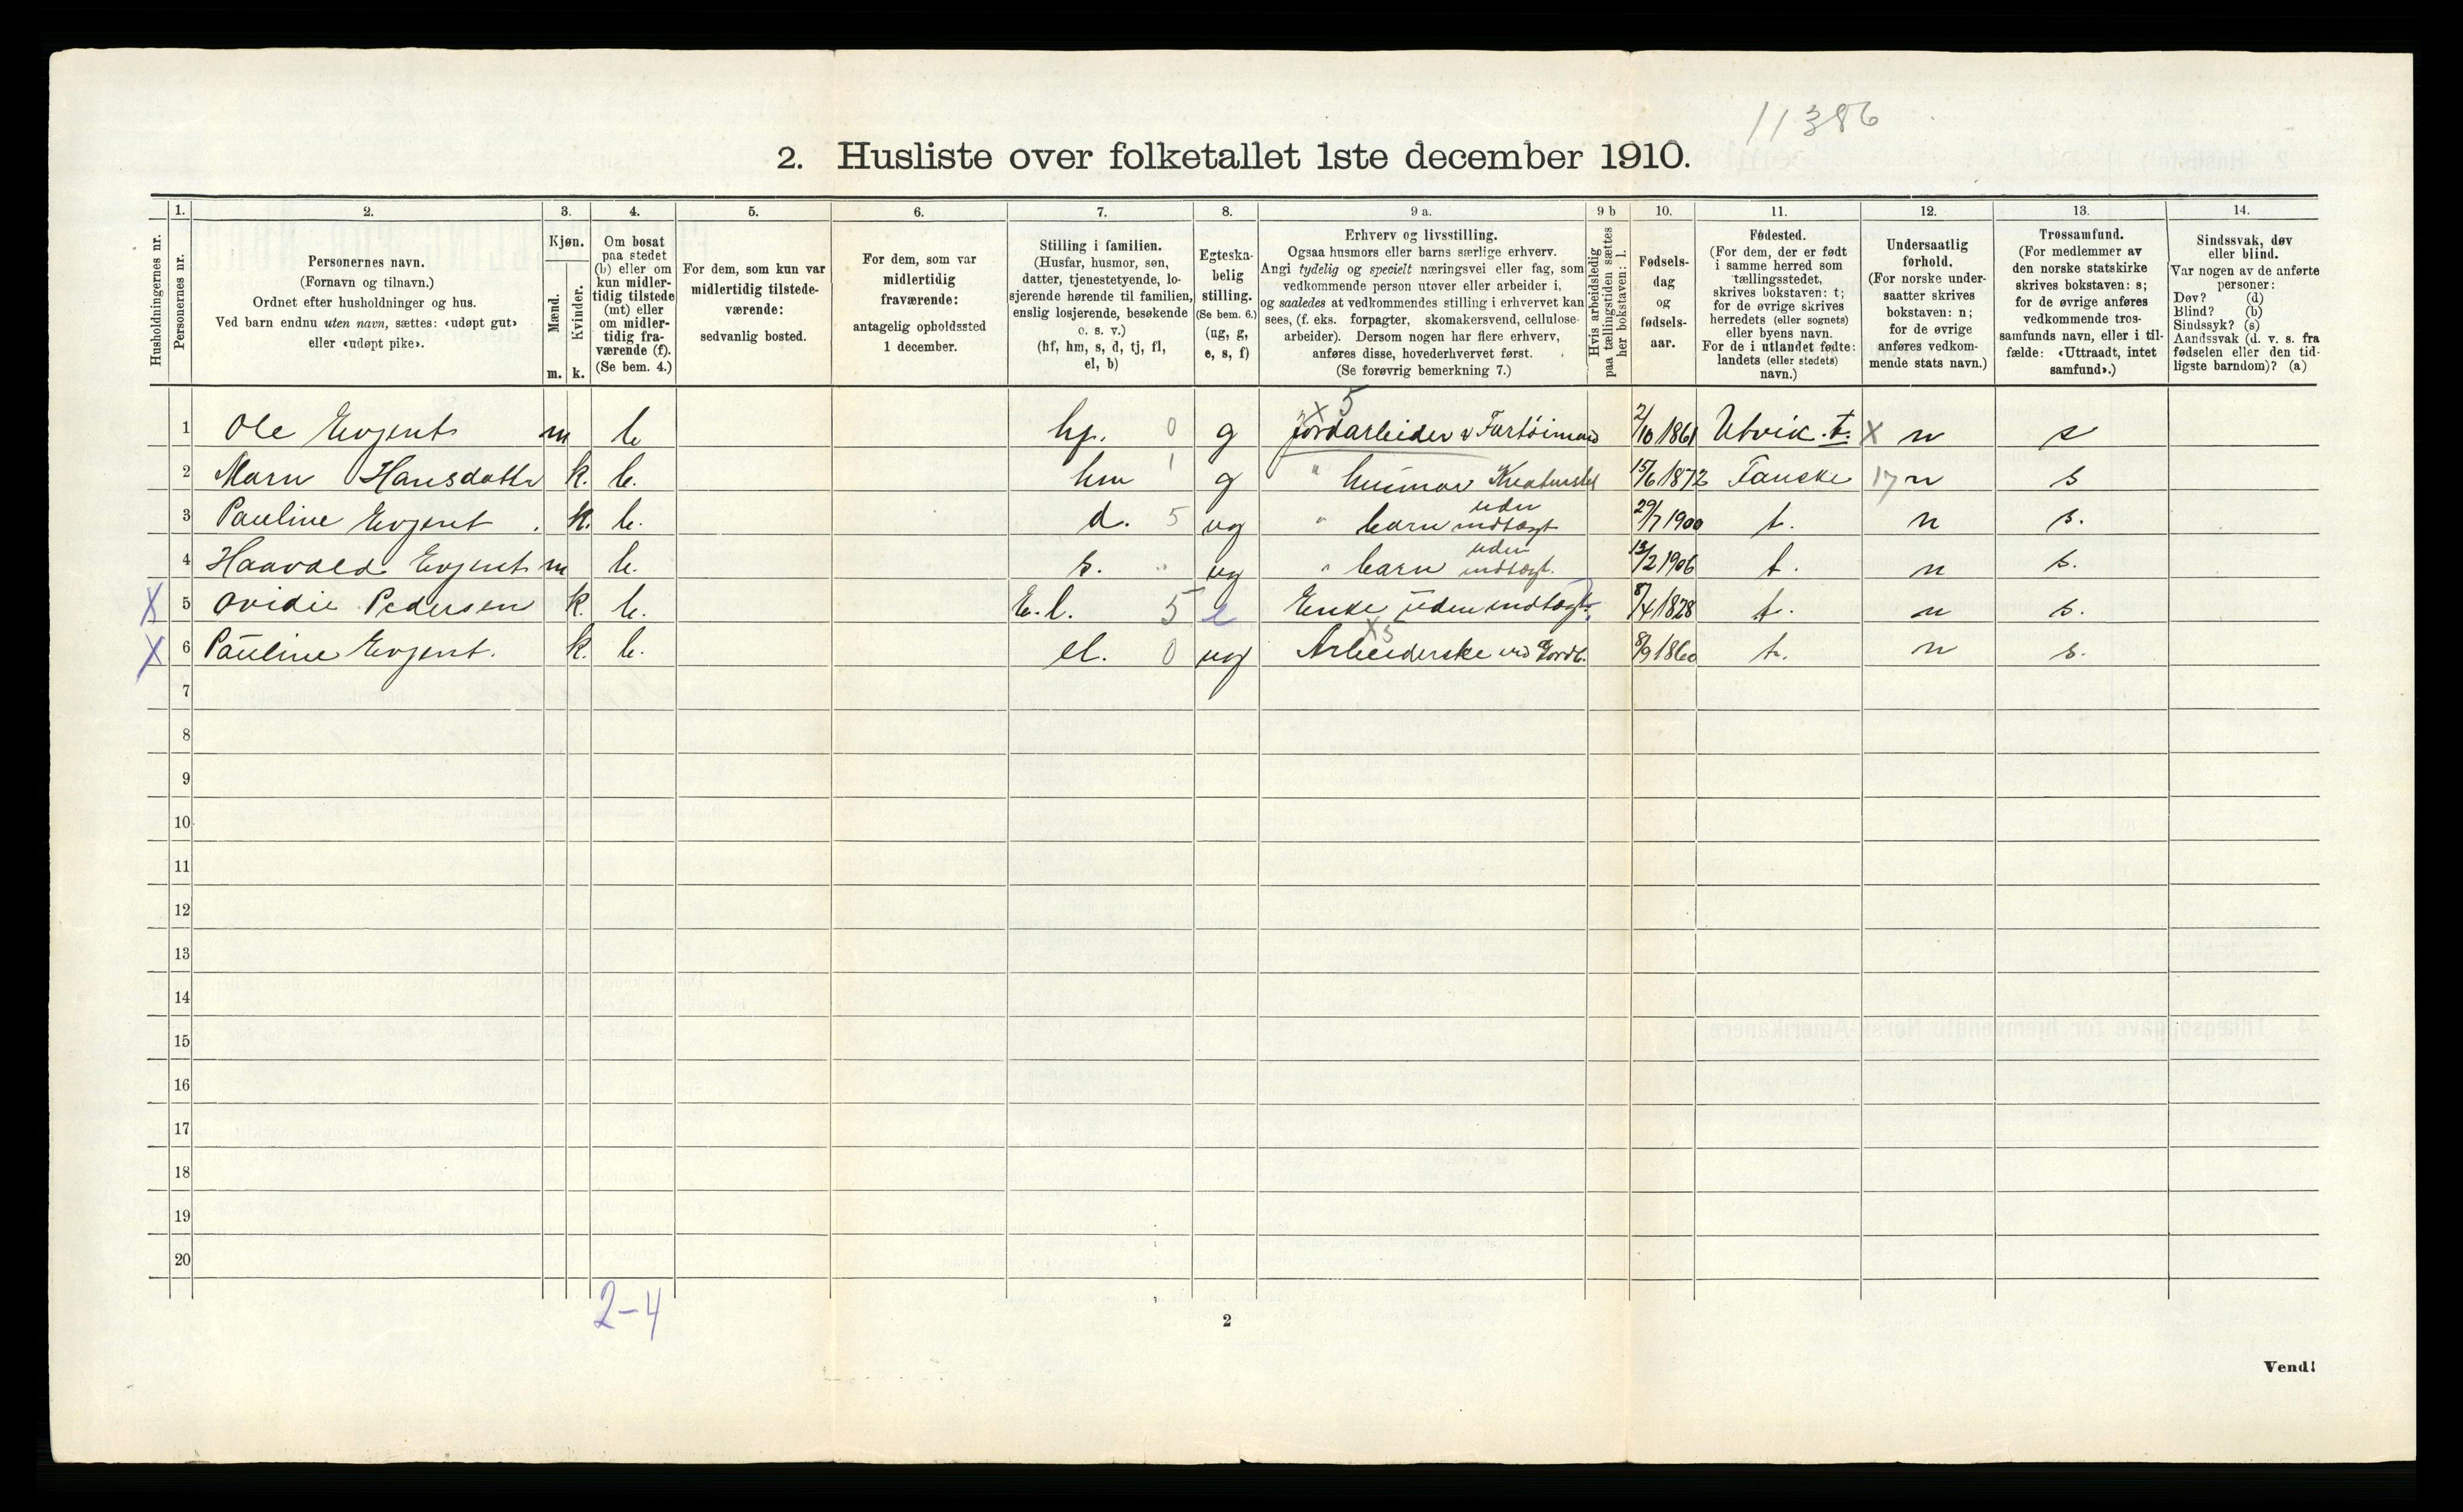 11386
2. Husliste over folketallet 1ste december 1910.
Husholdningernes nr.
1.
Personernes nr.
2.
Personernes navn.
(Fornavn og tilnavn.)
Ordnet efter husholdninger og hus.
Ved barn endnu uten navn, sættes: «udøpt gut»
eller «udøpt pike».
3.
Kjøn.
Mænd.
Kvinder.
m. k.
4.
Om bosat
paa stedet
(b) eller om
kun midler-
tidig tilstede
(mt) eller
om midler-
tidig fra-
værende (f).
(Se bem. 4.)
5.
For dem, som kun var
midlertidig tilstede-
værende:
sedvanlig bosted.
6.
For dem, som var
midlertidig
fraværende:
antagelig opholdssted
1 december.
7.
Stilling i familien.
(Husfar, husmor, søn,
datter, tjenestetyende, lo-
sjerende hørende til familien,
enslig losjerende, besøkende
o. s. v.)
(hf, hm, s, d, tj, fl,
el, b)
8.
Egteska-
belig
stilling.
(Se bem. 6.)
(ug, g,
e, s, f)
9 a.
Erhverv og livsstilling.
Ogsaa husmors eller barns særlige erhverv.
Angi tydelig og specielt næringsvei eller fag, som
vedkommende person utøver eller arbeider i,
og saaledes at vedkommendes stilling i erhvervet kan
sees, (f. eks. forpagter, skomakersvend, cellulose-
arbeider). Dersom nogen har flere erhverv,
anføres disse, hovederhvervet først.
(Se forøvrig bemerkning 7.)
9 b
Hvis arbeidsledig
paa tællingstiden sættes
her bokstaven: l.
10.
Fødsels-
dag
og
fødsels-
aar.
11.
Fødested.
(For dem, der er født
i samme herred som
tællingsstedet,
skrives bokstaven: t;
for de øvrige skrives
herredets (eller sognets)
eller byens navn.
For de i utlandet fødte:
landets (eller stedets)
navn.)
12.
Undersaatlig
forhold.
(For norske under-
saatter skrives
bokstaven: n;
for de øvrige
anføres vedkom-
mende stats navn.)
13.
Trossamfund.
(For medlemmer av
den norske statskirke
skrives bokstaven: s;
for de øvrige anføres
vedkommende tros-
samfunds navn, eller i til-
fælde: «Uttraadt, intet
samfund».)
14.
Sindssvak, døv
eller blind.
Var nogen av de anførte
personer:
Døv? (d)
Blind? (b)
Sindssyk? (s)
Aandssvak (d. v. s. fra
fødselen eller den tid-
ligste barndom)? (a)
X 5
1 Ole Evjent m b hf. 0 g Jordarbeider 2/10 1861 Utvik. t. X n s
2 Marn Hansdatter k. b. hm 1 g " husmor 15/6 1872 Fauske 17 n s
3 Pauline Evjent k. b. d. 5 ug " barn uden indtægt 29/7 1900 t. n s.
4 Haavald Evjent m b. s. " ug " barn uden indtægt. 13/2 1906 t. n s.
X 5 Ovidie Pedersen k. b. E. l. 5 e Enke uden indtægt. 8/4 1828 t. n s.
X 6 Pauline Evjent. k. b. el. 0 ug X5 Arbeiderske ved Jordb. 8/9 1860 t. n s.
7
8
9
10
11
12
13
14
15
16
17
18
19
20
2-4
2
Vend!